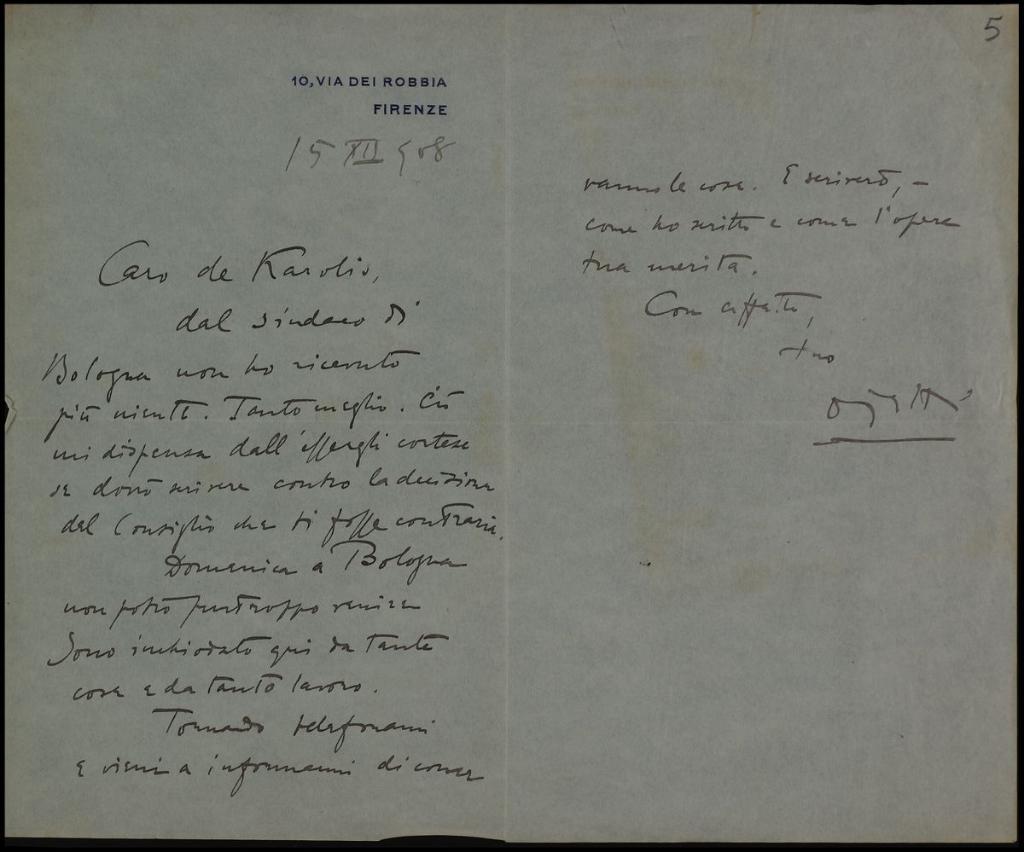 5
10, VIA DEI ROBBIA
FIRENZE
15 XII 908
Caro de Karolis,
dal sindaco di
Bologna non ho ricevuto
più niente. Tanto meglio. Ciò
mi dispensa dall'essergli cortese
se dovrò scrivere contro la decisione
del Consiglio che ti fosse contraria.
Domenica a Bologna
non potrò purtroppo venire
Sono inchiodato qui da tante
cose e da tanto lavoro.
Tornando telefonami
e vieni a informarmi di come
vanno le cose. E scriverò, –
come ho scritto e come l'opera
tua merita.
Con affetto,
tuo
Ojetti